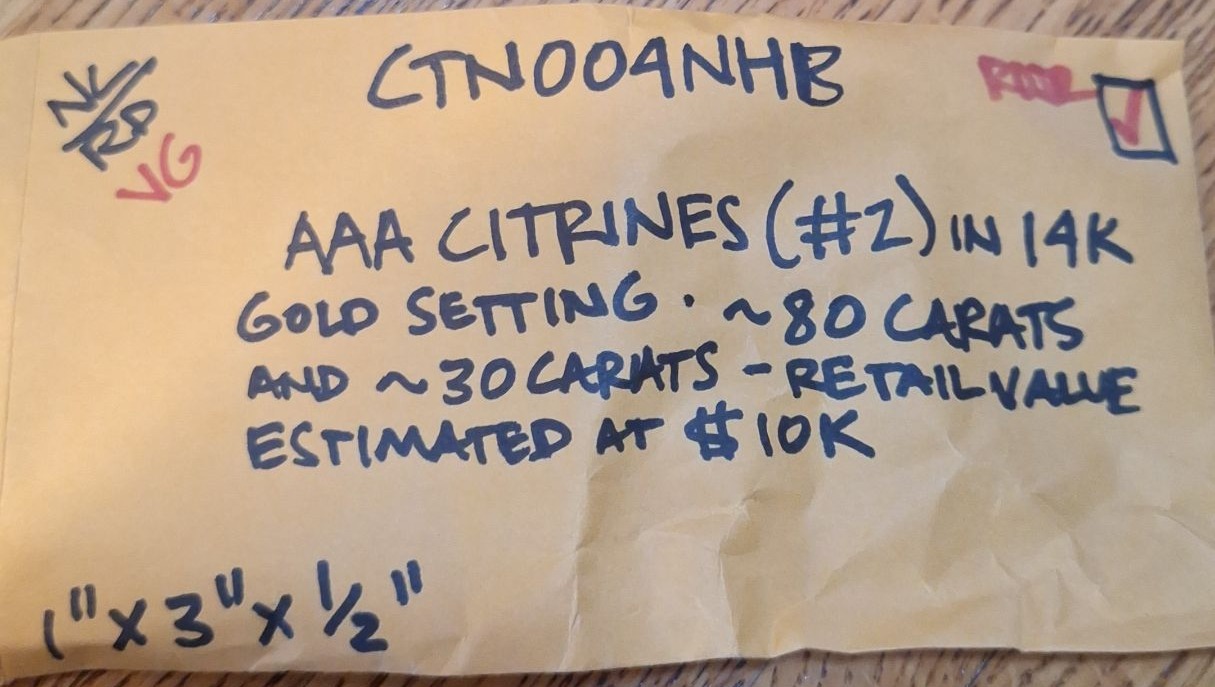 NL/RP
VG
CTN004NHB
AAA CITRINES (#2) IN 14K
GOLD SETTING . ~80 CARATS
AND ~30 CARATS - RETAIL VALUE
ESTIMATED AT $10K
1" x 3" x 1/2"